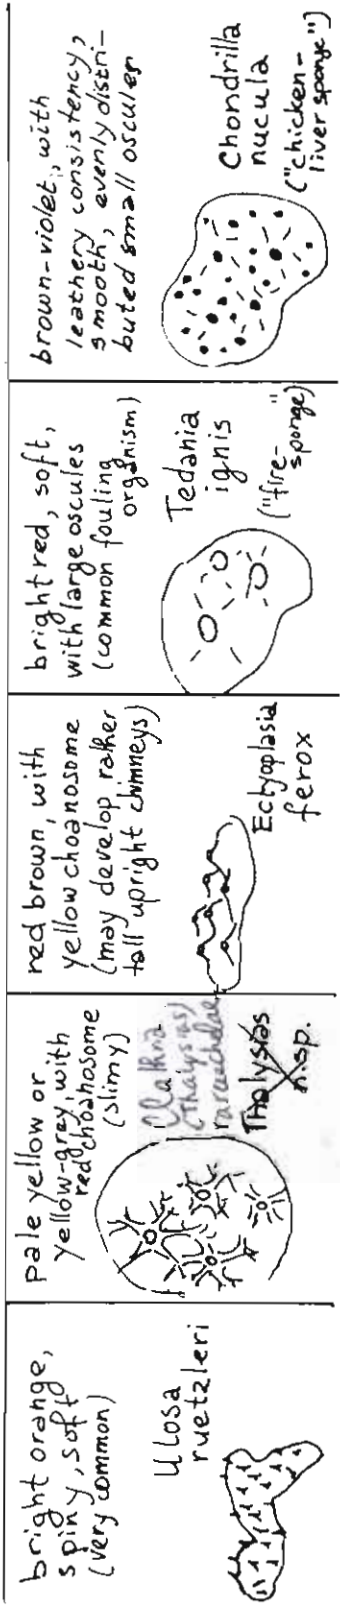 bright orange,
spiny, soft
(very common)
Ulosa
ruetzleri
pale yellow or
yellow-grey, with
red choanosome
(slimy)
Clathria
(Thalysias)
raraechelae
Thalysias
n.sp.
red brown, with
yellow choanosome
(may develop rather
tall upright chimneys)
Ectyoplasia
ferox
bright red, soft,
with large oscules
(common fouling
organism)
Tedania
ignis
("fire-
sponge")
brown-violet, with
leathery consistency,
smooth, evenly distri-
buted small oscules
Chondrilla
nucula
("chicken-
liver sponge")